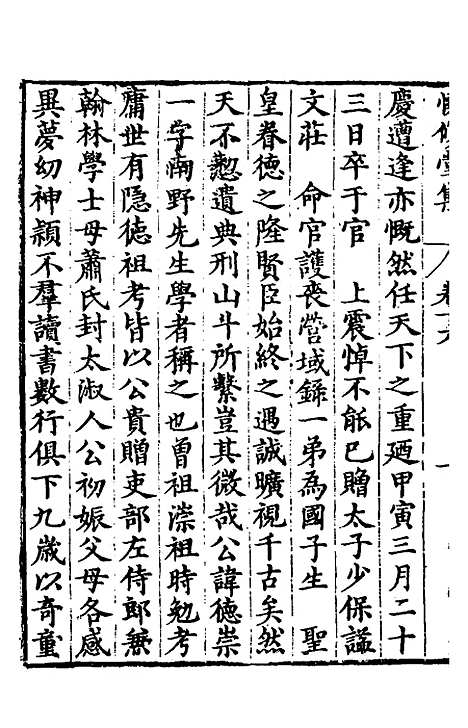 慶遭逢亦慨然任天下之重廼甲寅三月二十
三日卒于官　上震悼不能已贈太子少保諡
文莊　命官護喪營域錄一弟為國子生　聖
皇眷德之隆賢臣始終之遇誠曠視千古矣然
天不憗遺典刑山斗所繫豈其微哉公諱德崇
一字南野先生學者稱之也曾祖漴祖時勉考
庸世有隱德祖考皆以公貴贈吏部左侍郎兼
翰林學士母蕭氏封太淑人公初娠父母各感
異夢幼神穎不羣讀書數行俱下九歲以奇童